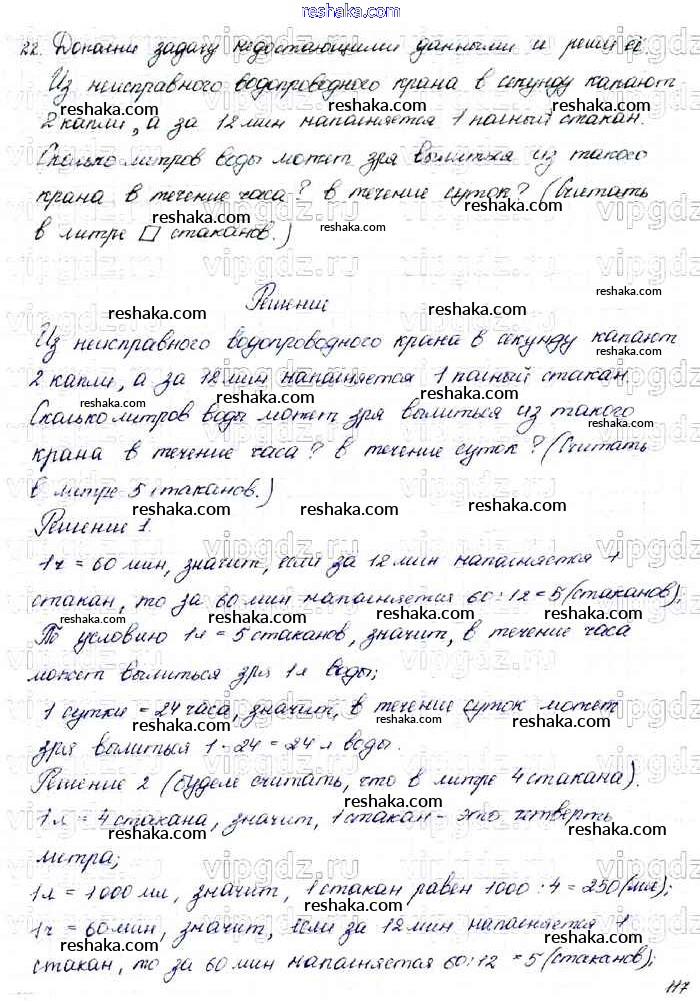 reshaka.com
22. Дополни задачу недостающими данными и реши её.
Из неисправного водопроводного крана в секунду капают
2 капли, а за 12 мин наполняется 1 полный стакан.
Сколько литров воды может зря вылиться из такого
крана в течение часа? в течение суток? (Считать
в литре □ стаканов.)
Решение
Из неисправного водопроводного крана в секунду капают
2 капли, а за 12 мин наполняется 1 полный стакан.
Сколько литров воды может зря вылиться из такого
крана в течение часа? в течение суток? (Считать
в литре 5 стаканов.)
Решение 1.
1ч = 60 мин, значит, если за 12 мин наполняется 1
стакан, то за 60 мин наполняется 60:12=5 (стаканов);
По условию 1л = 5 стаканов, значит, в течение часа
может вылиться зря 1л воды;
1 сутки = 24 часа, значит, в течение суток может
зря вылиться 1·24=24 л воды.
Решение 2 (будем считать, что в литре 4 стакана).
1л = 4 стакана, значит, 1 стакан - это четверть
литра;
1л = 1000 мл, значит, 1 стакан равен 1000:4=250 (мл);
1ч = 60 мин, значит, если за 12 мин наполняется 1
стакан, то за 60 мин наполняется 60:12=5 (стаканов);
117